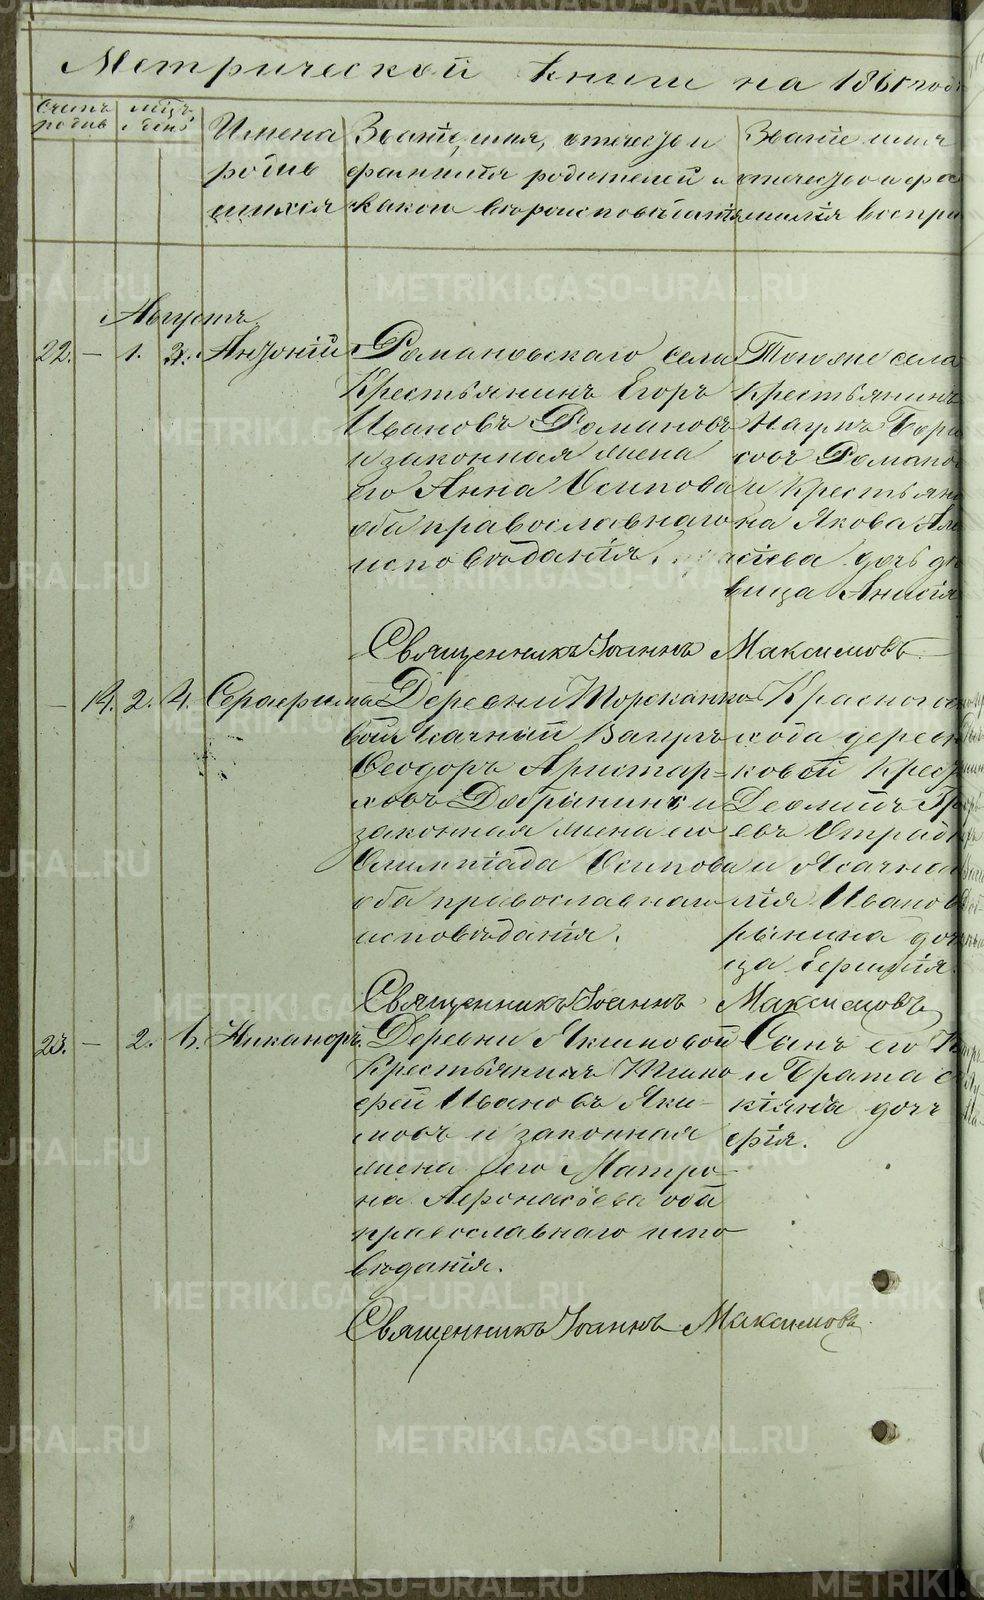 Метрической книги на 1861 годъ
Счетъ родив
мѣц. и день
Имена родив шихся
Званіе, имя, отчество и фамилія родителей и какого вѣроисповѣданія
Званіе имя отчество и фа милія воспри
Августъ
22. — 1. 3. Антоній
Романовскаго села
Крестьянинъ Егоръ
Ивановъ Романовъ
и законная жена
его Анна Осипова
оба православнаго
исповѣданія.
Тогоже села
крестьянинъ
Наумъ Бори
совъ Романо
и крестьян
на Якова Ал
сѣева дочь дѣ
вица Анисія
Священникъ Іоаннъ Максимовъ
— 19. 2. 4. Серафима
Деревни Торсканко
вой Ясачный Вагулъ
Ѳеодоръ Аристар
ховъ Добрынинъ и
законная жена его
Олимпіада Осипова
оба православнаго
исповѣданія.
Красного
хода дерев
ковой Крест
Леонтій Гр
евъ
и Ясачна
лія Иванов
рынина доч
ца
Священникъ Іоаннъ Максимовъ
23. — 2. 6. Никаноръ
Деревни Якимовой
Крестьянинъ Тимо
ѳей Ивановъ Яки
мовъ и законная
жена его Матро
на Афонасьева оба
православнаго испо
вѣданія.
Сынъ его
и Брата
кіяна доч
фія.
Священникъ Іоаннъ Максимовъ
METRIKI.GASO-URAL.RU